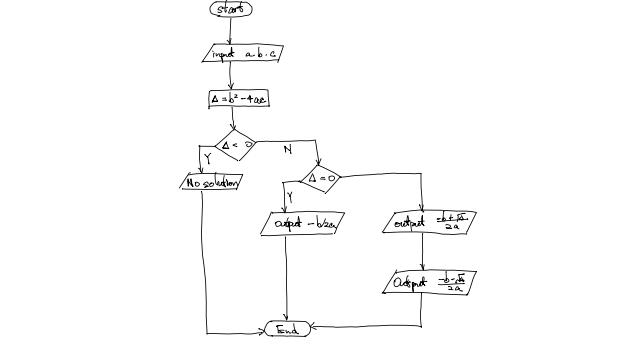 start
input a.b.c
Δ=b²-4ac
Δ< 0
Y
N
No solution
Δ=0
Y
output -b/2a
output (-b+√Δ)/2a
Output (-b-√Δ)/2a
End